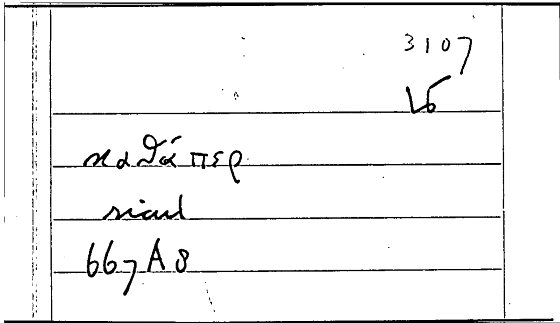 3107
καθάπερ
sicut
667A8